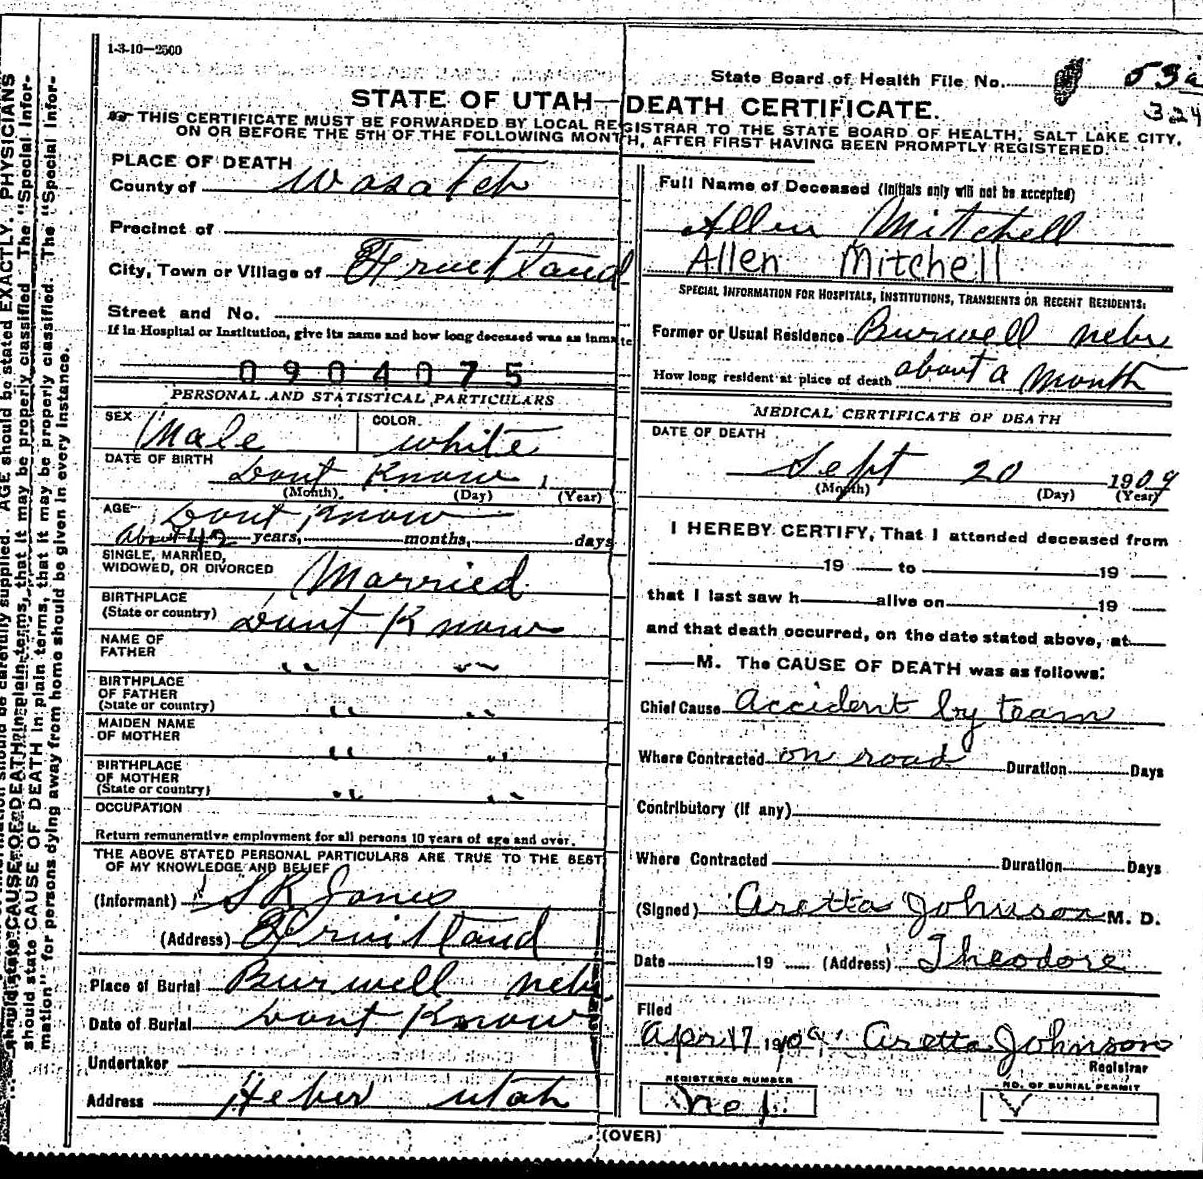 1-3-10—2500
State Board of Health File No. 53a
324
STATE OF UTAH—DEATH CERTIFICATE.
THIS CERTIFICATE MUST BE FORWARDED BY LOCAL REGISTRAR TO THE STATE BOARD OF HEALTH, SALT LAKE CITY,
ON OR BEFORE THE 5TH OF THE FOLLOWING MONTH, AFTER FIRST HAVING BEEN PROMPTLY REGISTERED
PLACE OF DEATH
County of Wasatch
Precinct of
City, Town or Village of Fruitland
Street and No.
If in Hospital or Institution, give its name and how long deceased was an inmate
0904075
PERSONAL AND STATISTICAL PARTICULARS
SEX Male COLOR white
DATE OF BIRTH Dont Know
(Month) (Day) (Year)
AGE Dont Know
About 42 years, months, days
SINGLE, MARRIED,
WIDOWED, OR DIVORCED Married
BIRTHPLACE
(State or country) Dont Know
NAME OF
FATHER " "
BIRTHPLACE
OF FATHER
(State or country) " "
MAIDEN NAME
OF MOTHER " "
BIRTHPLACE
OF MOTHER
(State or country) " "
OCCUPATION
Return remunerative employment for all persons 10 years of age and over.
THE ABOVE STATED PERSONAL PARTICULARS ARE TRUE TO THE BEST
OF MY KNOWLEDGE AND BELIEF
(Informant) S K Jones
(Address) Fruitland
Place of Burial Burwell nebr
Date of Burial Dont Know
Undertaker
Address Heber utah
Full Name of Deceased (Initials only will not be accepted)
Allen Mitchell
Allen Mitchell
SPECIAL INFORMATION FOR HOSPITALS, INSTITUTIONS, TRANSIENTS OR RECENT RESIDENTS:
Former or Usual Residence Burwell nebr
How long resident at place of death about a month
MEDICAL CERTIFICATE OF DEATH
DATE OF DEATH
Sept 20 1909
(Month) (Day) (Year)
I HEREBY CERTIFY, That I attended deceased from
19 to 19
that I last saw h alive on 19
and that death occurred, on the date stated above, at
M. The CAUSE OF DEATH was as follows:
Chief Cause accident by team
Where Contracted on road Duration Days
Contributory (if any)
Where Contracted Duration Days
(Signed) Aretta Johnson M. D.
Date 19 (Address) Theodore
Filed
Apr 17 1909 Aretta Johnson
Registrar
REGISTERED NUMBER
No 1.
NO. OF BURIAL PERMIT
(OVER)
AGE should be stated EXACTLY. PHYSICIANS
should state CAUSE OF DEATH in plain terms, that it may be properly classified. The "Special Infor-
mation" for persons dying away from home should be given in every instance.